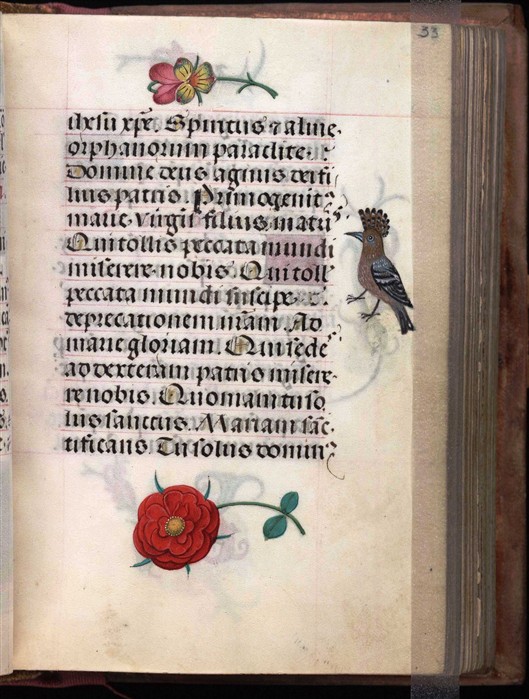 33
ihesu xpe. Spiritus ⁊ alme
orphanorum paraclite.
Domine deus agnus dei fi
lius patris. Primogenit᷒
marie virgĩs filius matris
Qui tollis peccata mundi
miserere nobis. Qui toll᷒
peccata mundi suscipe
deprecationem nr̃am. Ad
marie gloriam. Qui sede᷒
ad dexteram patris misere
re nobis. Quoniam tu so
lus sanctus. Mariam sãc
tificans. Tu solus domin᷒